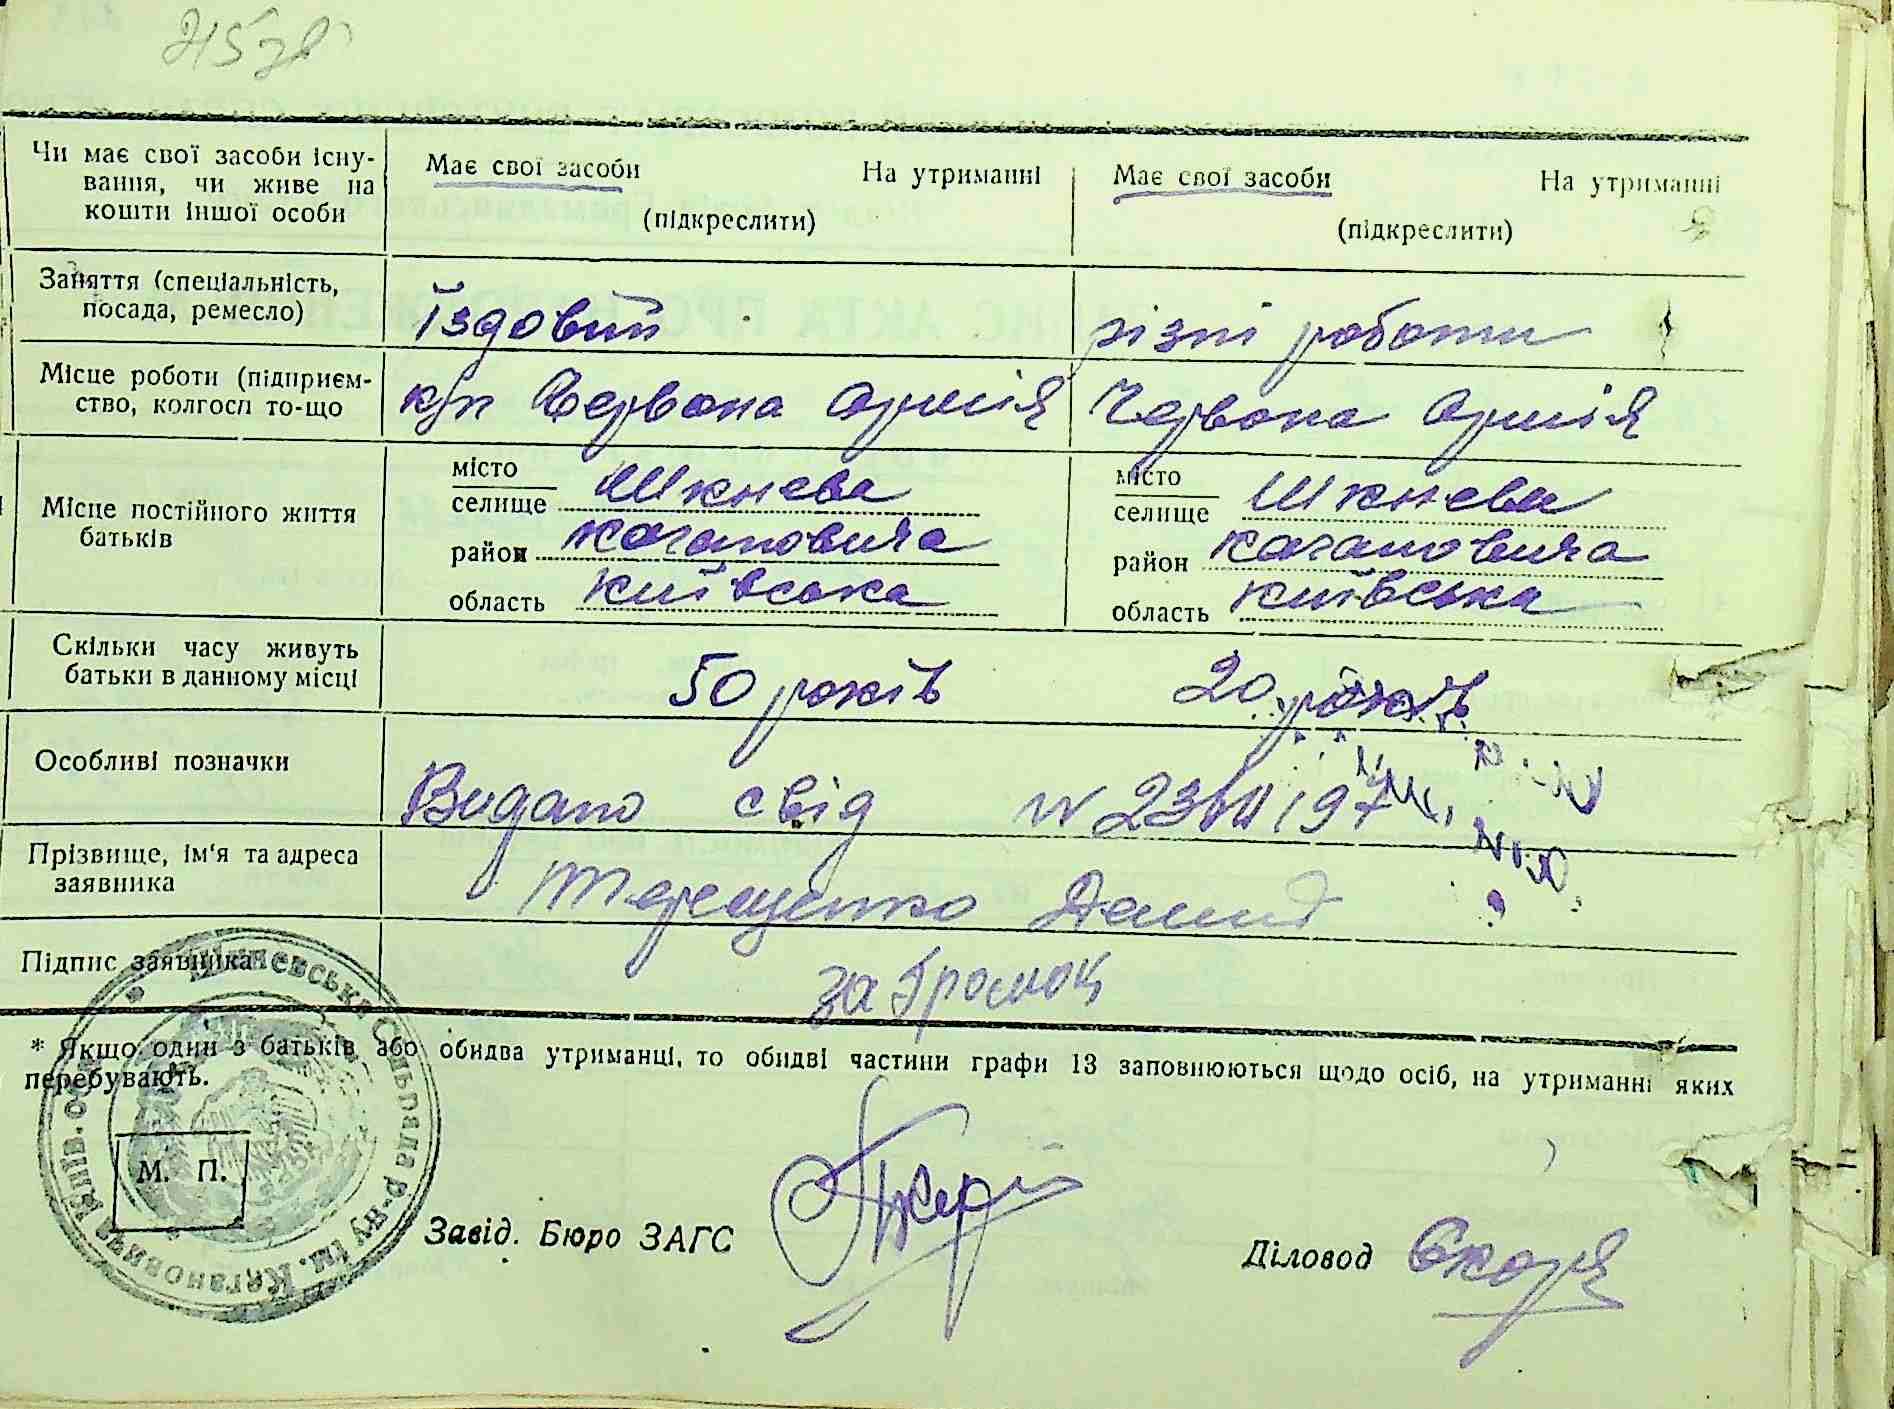 Чи має свої засоби існу-
вання, чи живе на
кошти іншої особи
Має свої засоби На утриманні
(підкреслити)
Має свої засоби На утриманні
(підкреслити)
Заняття (спеціальність,
посада, ремесло)
Їздовий
різні роботи
Місце роботи (підприєм-
ство, колгосп то-що
к/п Червона Армія
Червона Армія
Місце постійного життя
батьків
місто
селище Шкнева
район Кагановича
область Київська
місто
селище Шкнева
район Кагановича
область Київська
Скільки часу живуть
батьки в данному місці
50 років
20 років
Особливі позначки
Видано свід N
Прізвище, ім'я та адреса
заявника
Терещенко Демид
Підпис заявника
за
* Якщо один з батьків або обидва утриманці, то обидві частини графи 13 заповнюються щодо осіб, на утриманні яких
перебувають.
М. П.
Сільрада р-ну ім. Кагановича Київ. обл.
Завід. Бюро ЗАГС
Діловод